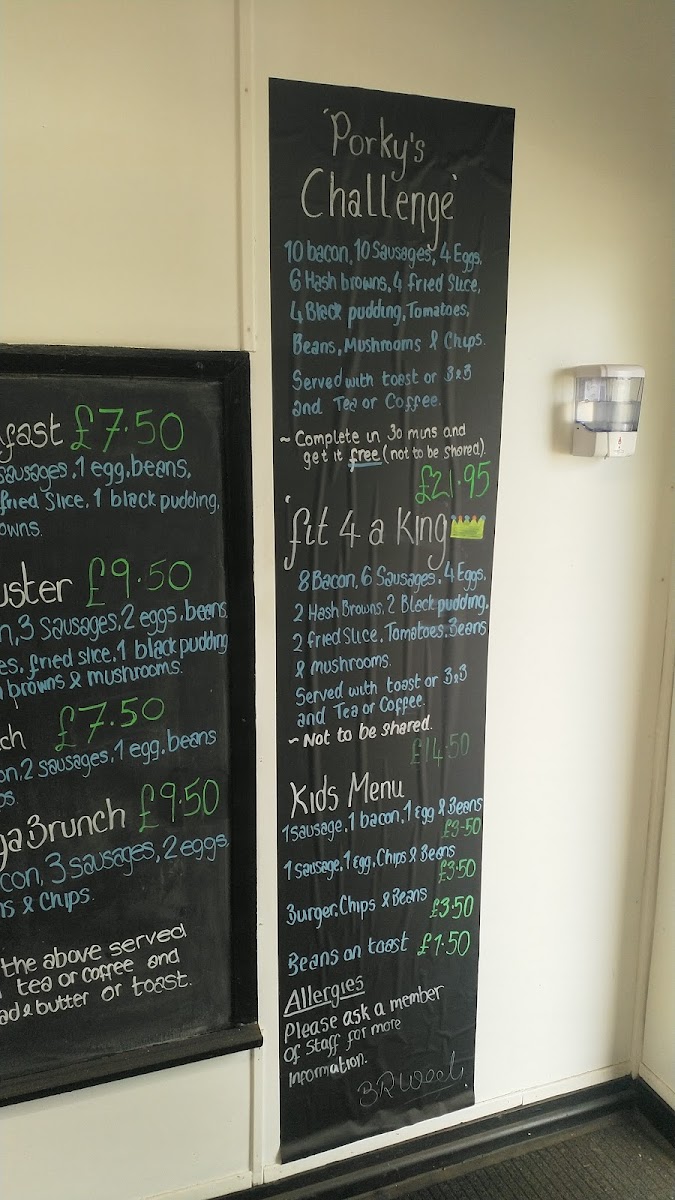 fast £7.50
sausages, 1 egg, beans,
fried slice, 1 black pudding,
owns.
uster £9.50
n, 3 sausages, 2 eggs, beans,
es, fried slice, 1 black pudding
browns & mushrooms.
ch £7.50
on, 2 sausages, 1 egg, beans
ps.
ga Brunch £9.50
con, 3 sausages, 2 eggs,
ns & Chips.
the above served
tea or coffee and
ad & butter or toast.
'Porky's
Challenge'
10 bacon, 10 Sausages, 4 Eggs,
6 Hash browns, 4 fried Slice,
4 Black pudding, Tomatoes,
Beans, Mushrooms & Chips.
Served with toast or B&B
and Tea or Coffee.
~ Complete in 30 mins and
get it free (not to be shared).
£21.95
'fit 4 a King
8 Bacon, 6 Sausages, 4 Eggs,
2 Hash Browns, 2 Black pudding,
2 fried Slice, Tomatoes, Beans
& mushrooms.
Served with toast or B&B
and Tea or Coffee.
~ Not to be shared.
£14.50
Kids Menu
1 sausage, 1 bacon, 1 Egg & Beans
£3.50
1 sausage, 1 Egg, Chips & Beans
£3.50
Burger, Chips & Beans
£3.50
Beans on toast £1.50
Allergies
Please ask a member
of staff for more
information.